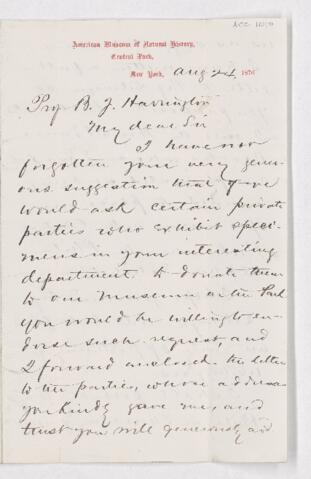 ACC 1050
American Museum of Natural History,
Central Park,
New York, Aug 24 1876
Prof B. J. Harrington
My dear Sir
I have not
forgotten your very gener-
ous suggestion that if we
would ask certain private
parties who exhibit speci-
mens in your interesting
department to donate them
to our Museum at the Park
you would be willing to en-
dorse such request, and
I forward enclosed the letter
to the parties, whose address
you kindly gave me, and
trust you will generously add